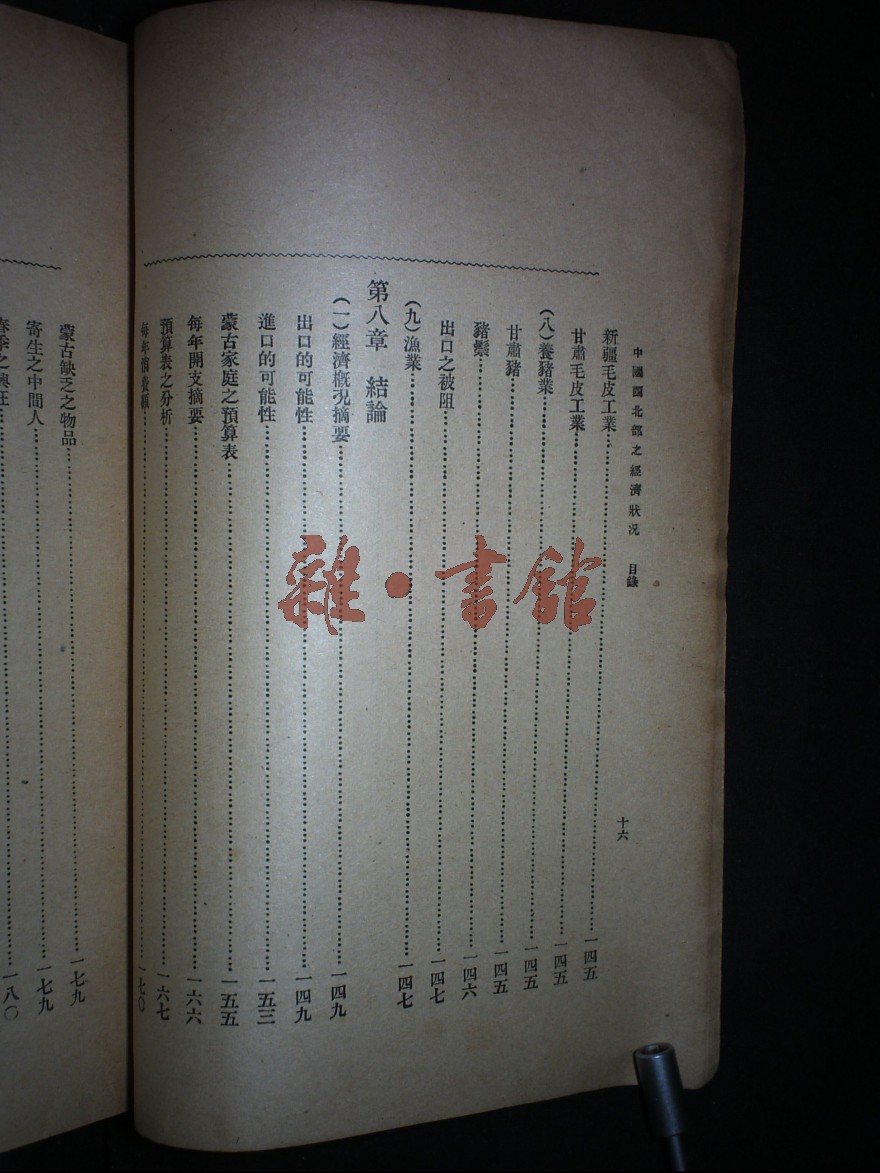 中國西北部之經濟狀况 目錄 十六
新疆毛皮工業⋯⋯一四五
甘肅毛皮工業⋯⋯一四五
(八)養豬業⋯⋯一四五
甘肅豬⋯⋯一四五
豬鬃⋯⋯一四六
出口之被阻⋯⋯一四七
(九)漁業⋯⋯一四七
第八章 結論
(一)經濟概况摘要⋯⋯一四九
出口的可能性⋯⋯一四九
進口的可能性⋯⋯一五三
蒙古家庭之預算表⋯⋯一五五
每年開支摘要⋯⋯一六六
預算表之分析⋯⋯一六七
每年消費額⋯⋯一七〇
蒙古缺乏之物品⋯⋯一七九
寄生之中間人⋯⋯一七九
春季之興旺⋯⋯一八〇
雜·書館